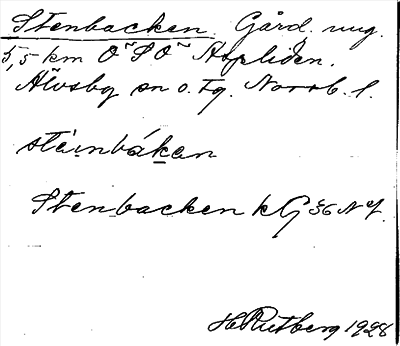 Stenbacken. Gård, ung.
5,5 km O~SO~ Aspliden.
Älvsby sn o. tg. Norrb. l.
stèinbákan
Stenbacken kG 36 NV.
H Rutberg 1928